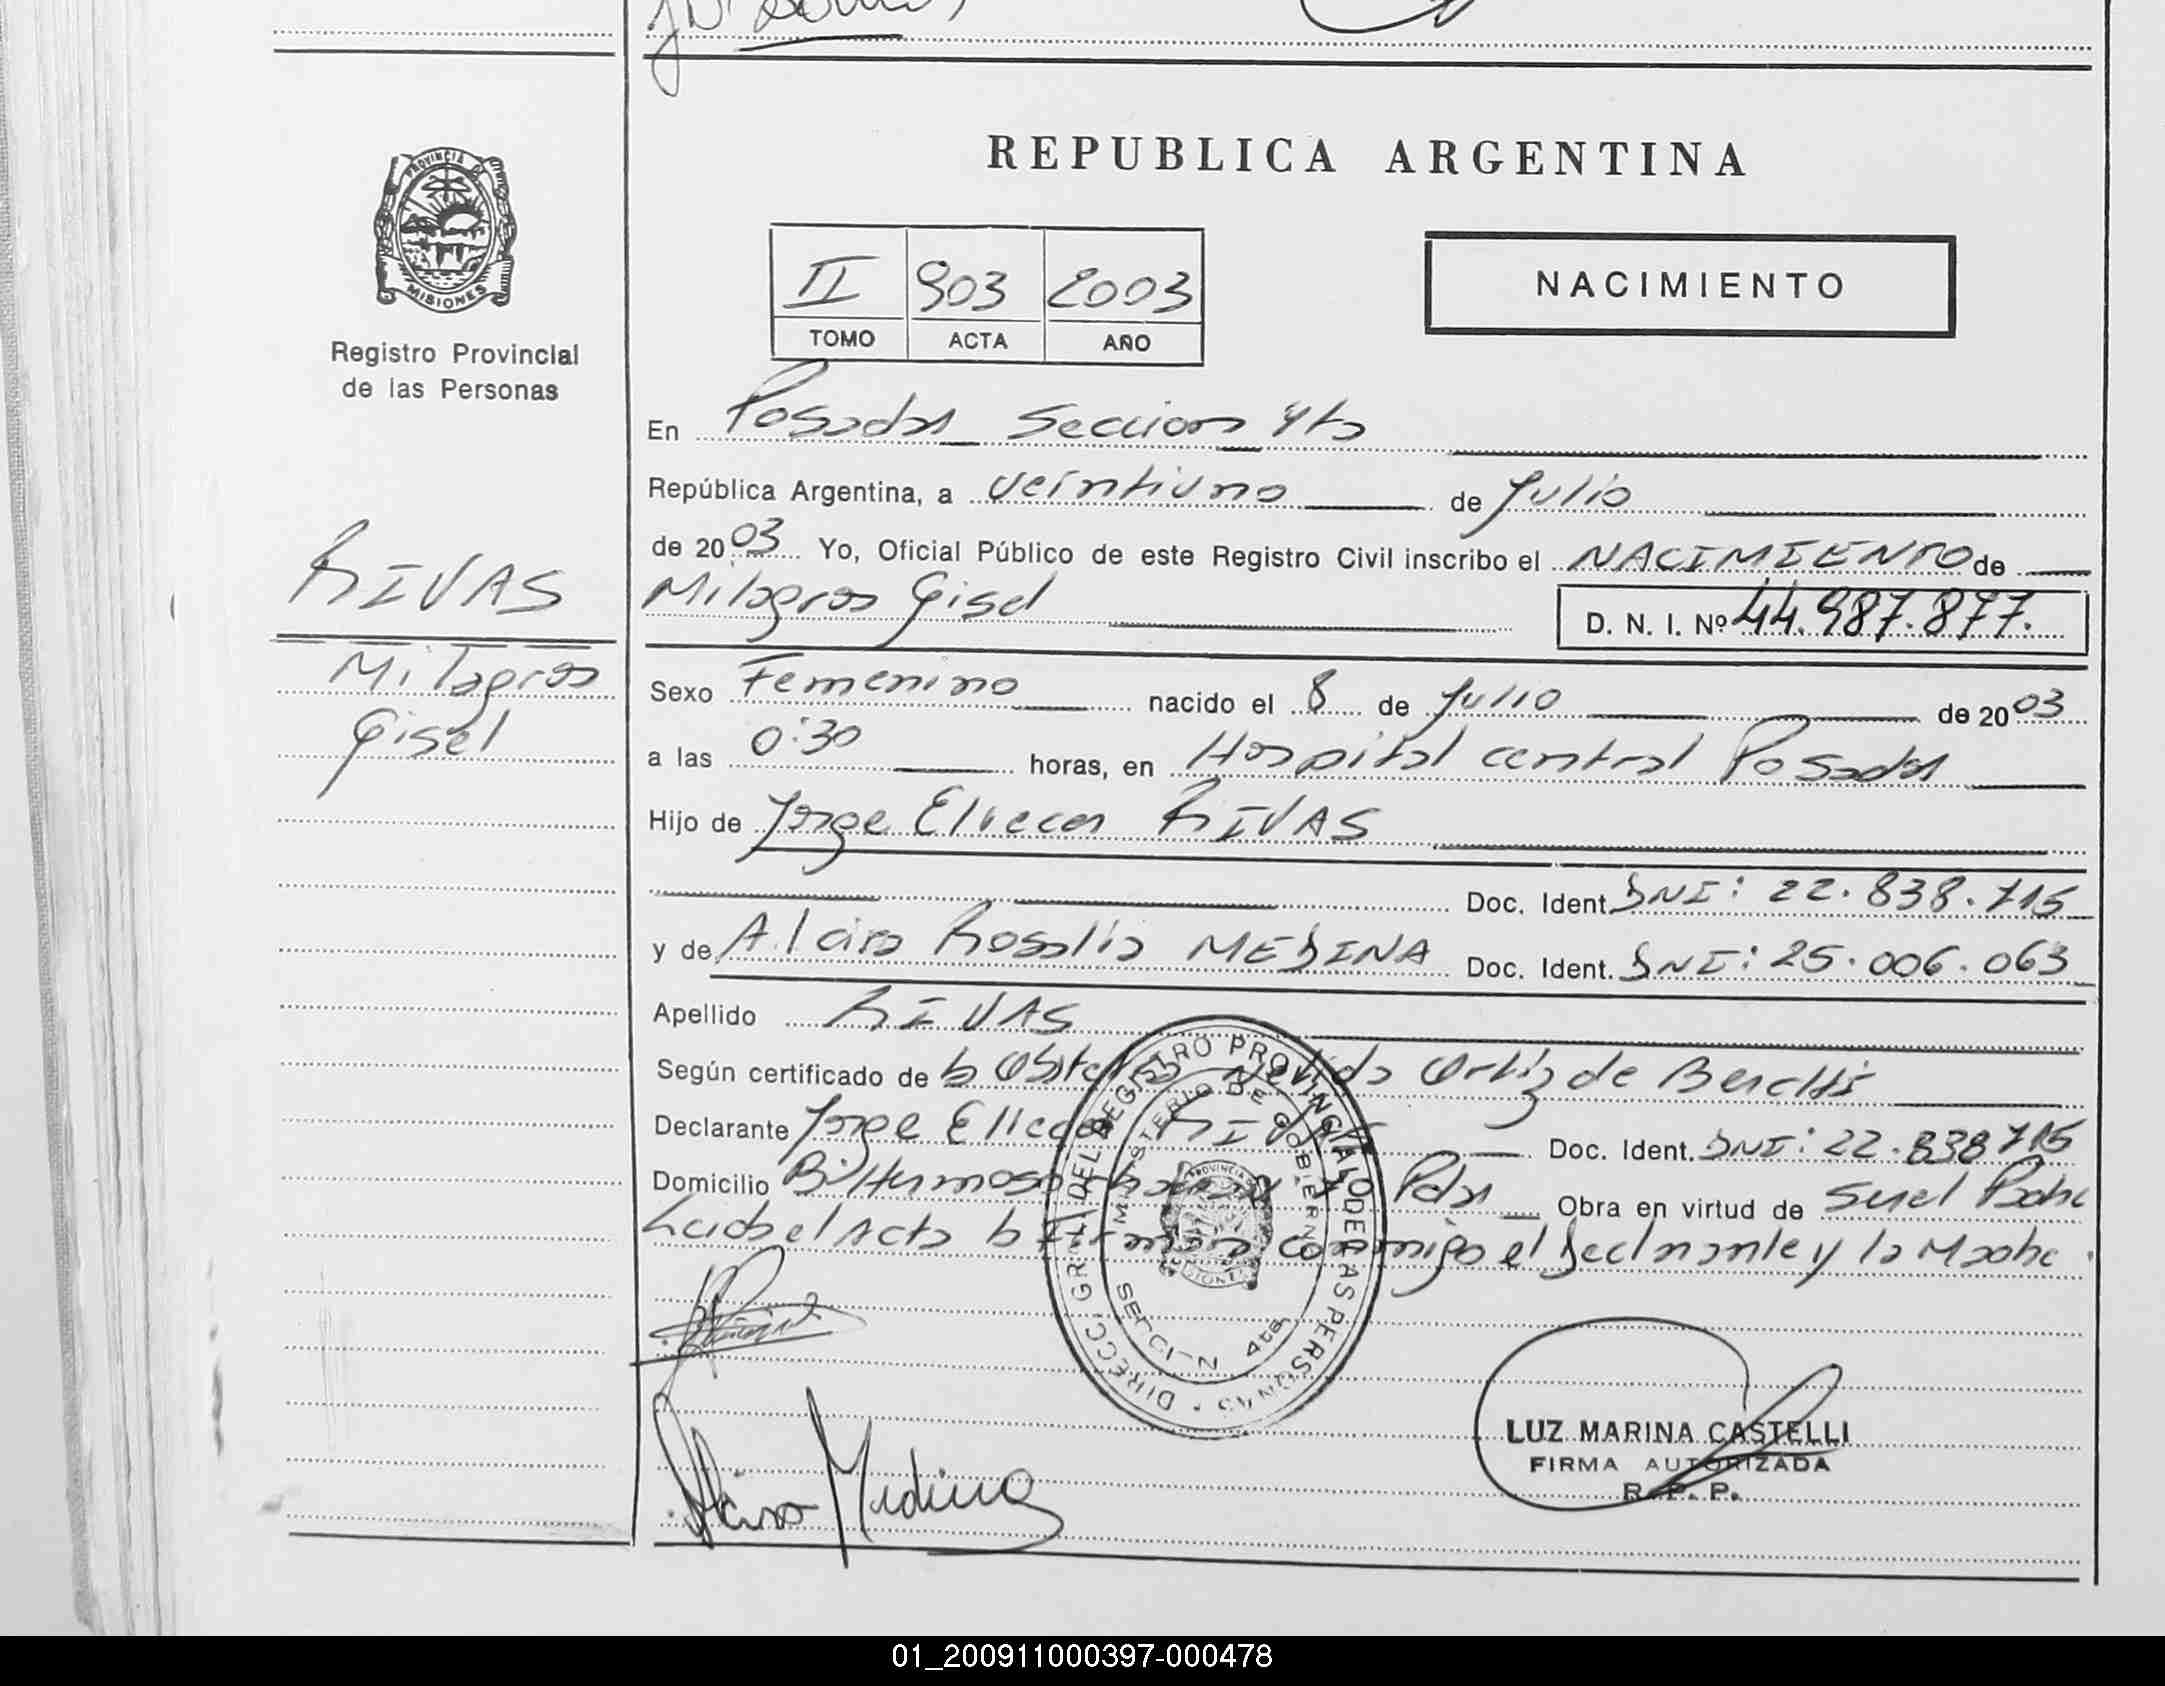 REPUBLICA ARGENTINA
PROVINCIA DE
MISIONES
Registro Provincial
de las Personas
II 903 2003
TOMO ACTA AÑO
NACIMIENTO
En Posadas Seccion 4ta
República Argentina, a veintiuno de Julio
de 2003 Yo, Oficial Público de este Registro Civil inscribo el NACIMIENTO de
RIVAS
Milagros Gisel
Milagros Gisel D. N. I. Nº 44.987.877.
Sexo Femenino nacido el 8 de Julio de 2003
a las 0:30 horas, en Hospital central Posadas
Hijo de Jorge Eliecer RIVAS
Doc. Ident. DNI: 22.838.715
y de Alcira Rosalia MEDINA Doc. Ident. DNI: 25.006.063
Apellido RIVAS
Según certificado de la Obstetra Ortiz de
Declarante Jorge Eliecer RIVAS Doc. Ident. DNI: 22.838715
Domicilio Bº Hermoso Pdas Obra en virtud de ser el Padre
Leida el Acta la Firma conmigo el Declarante y la Madre.
DIRECC. GRAL. DEL REGISTRO PROVINCIAL DE LAS PERSONAS
MINISTERIO DE GOBIERNO
PROVINCIA
MISIONES
SECCION 4ta
Alcira Medina
LUZ MARINA CASTELLI
FIRMA AUTORIZADA
R. P. P.
01_200911000397-000478